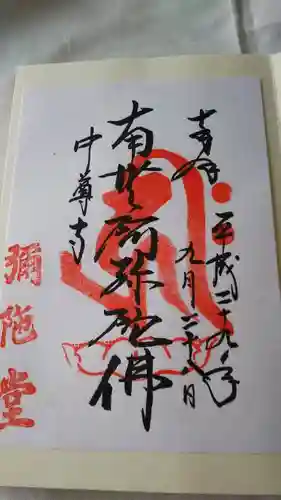 奉拝
平成二十九年
九月二十八日
南無阿弥陀佛
中尊寺
弥陀堂